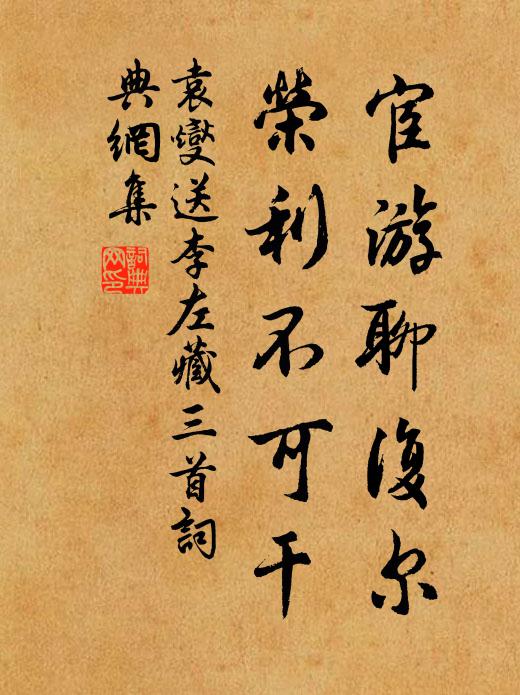 宦游聊復尔
榮利不可干
袁燮送李左藏三首詞
典網集
詞典网印